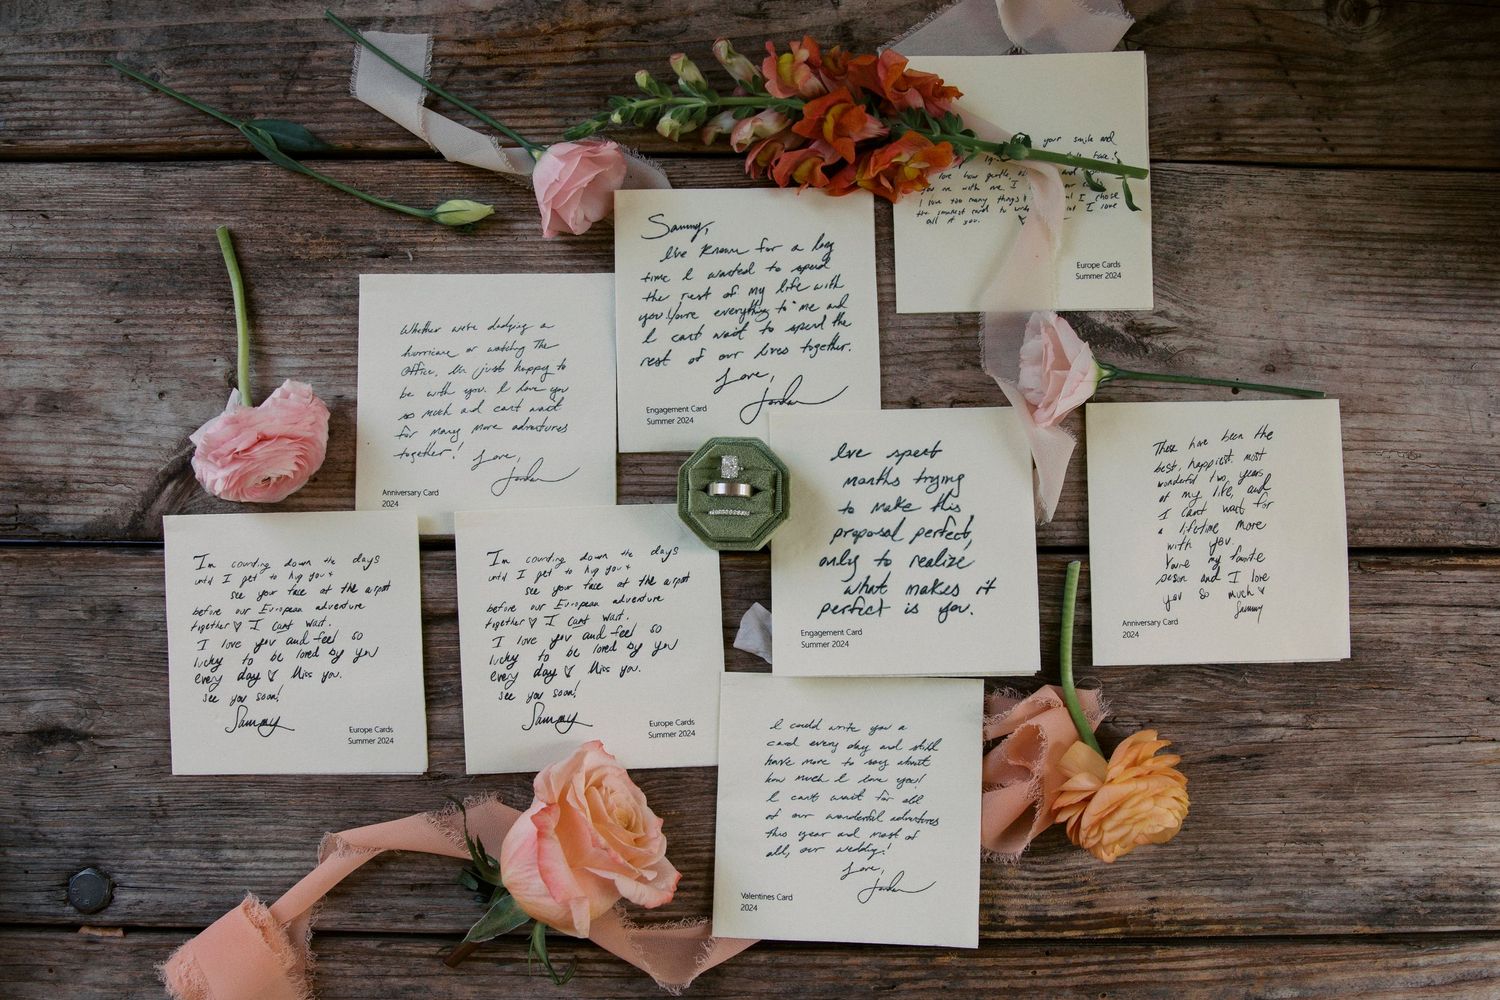 your smile and
face!
love how gentle,
you me with me I
I love too many things
I chose
the smallest card to
I love
all of you.
Europe Cards
Summer 2024
Sammy,
I've known for a long
time I wanted to spend
the rest of my life with
you. You're everything to me and
I can't wait to spend the
rest of our lives together.
Love,
Jordan
Engagement Card
Summer 2024
Whether we're dodging a
hurricane or watching The
Office, I'm just happy to
be with you. I love you
so much and can't wait
for many more adventures
together! Love,
Jordan
Anniversary Card
2024
I've spent
months trying
to make this
proposal perfect,
only to realize
what makes it
perfect is you.
Engagement Card
Summer 2024
These have been the
best, happiest, most
wonderful two years
of my life, and
I can't wait for
a lifetime more
with you.
You're my favorite
person and I love
you so much ♥
Sammy
Anniversary Card
2024
I'm counting down the days
until I get to hug you +
see your face at the airport
before our European adventure
together ♥ I can't wait.
I love you and feel so
lucky to be loved by you
every day ♥ Miss you.
see you soon!
Sammy
Europe Cards
Summer 2024
I'm counting down the days
until I get to hug you +
see your face at the airport
before our European adventure
together ♥ I can't wait.
I love you and feel so
lucky to be loved by you
every day ♥ Miss you.
see you soon!
Sammy
Europe Cards
Summer 2024
I could write you a
card every day and still
have more to say about
how much I love you!
I can't wait for all
of our wonderful adventures
this year and most of
all, our wedding!
Love,
Jordan
Valentines Card
2024